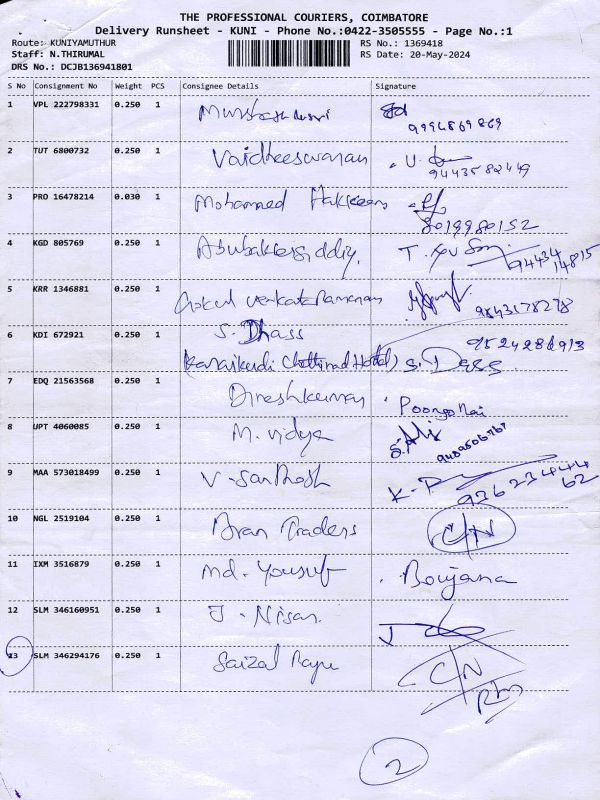 THE PROFESSIONAL COURIERS, COIMBATORE
Delivery Runsheet - KUNI - Phone No.:0422-3505555 - Page No.:1
Route: KUNIYAMUTHUR RS No.: 1369418
Staff: N.THIRUMAL RS Date: 20-May-2024
DRS No.: DCJB136941801
S No Consignment No Weight PCS Consignee Details Signature
1 VPL 222798331 0.250 1
9994869869
2 TUT 6800732 0.250 1 Vaidheeswaran U.
9443582449
3 PRO 16478214 0.030 1 Mohammed Hakkeem
8019980152
4 KGD 805769 0.250 1 T.
94434
14815
5 KRR 1346881 0.250 1 Gokul Venkataramanan
9843178278
6 KDI 672921 0.250 1 S. Dhass 9524282913
(Karaikudi Chettinad Hotel) S. Dass
7 EDQ 21563568 0.250 1 Dineshkumar
8 UPT 4060085 0.250 1 M. Vidya
9 MAA 573018499 0.250 1 V. Santhosh K.
93623444
62
10 NGL 2519104 0.250 1 Aran Traders C/N
11 IXM 3516879 0.250 1 Md. Yousuf
12 SLM 346160951 0.250 1 J. Nisar
13 SLM 346294176 0.250 1 C/N
2